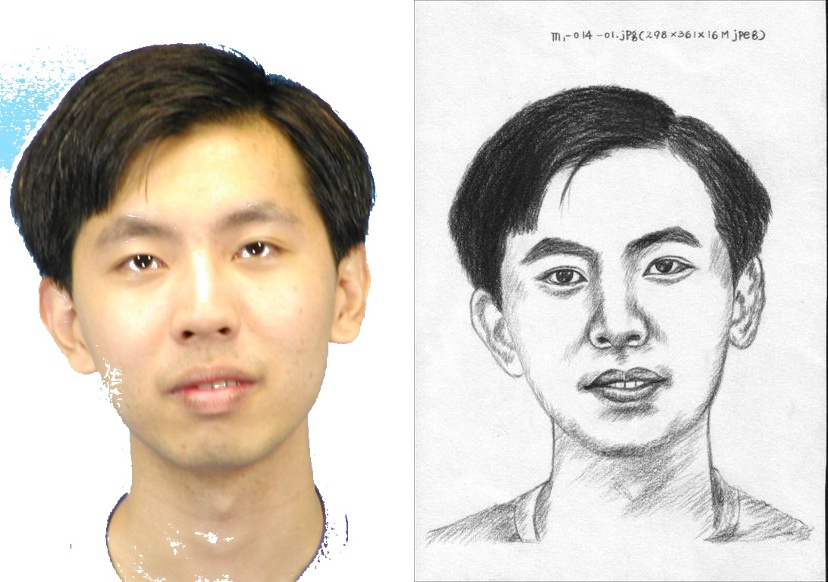 m,-014-01.jpg(298×361×16M jpeg)